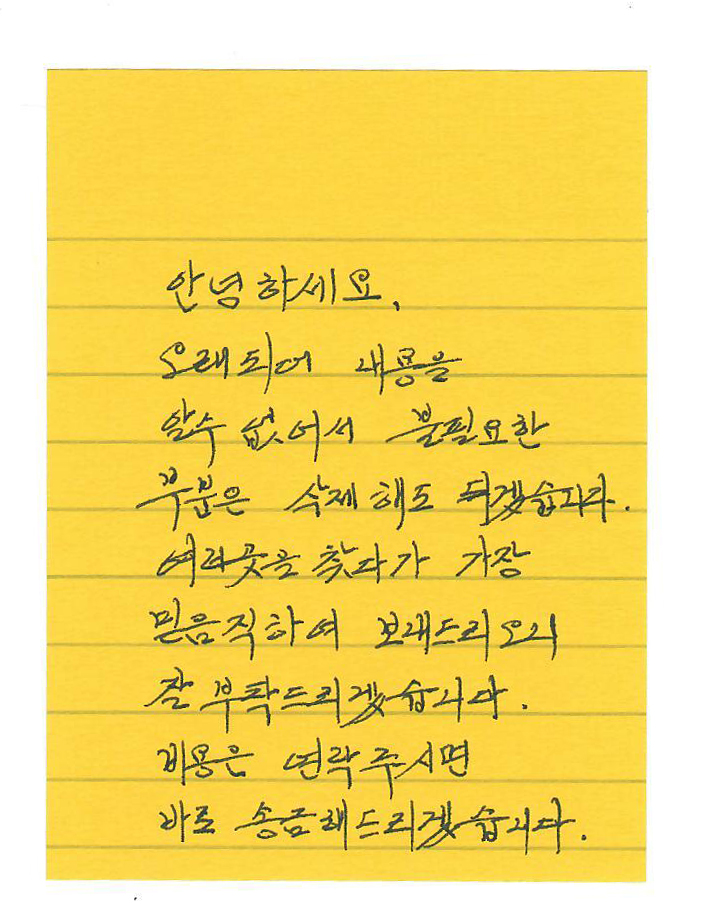 안녕하세요,
오래되어 내용을
알수 없어서 불필요한
부분은 삭제해도 되겠습니다.
여러곳을 찾다가 가장
믿음직하여 보내드리오니
잘 부탁드리겠습니다.
비용은 연락주시면
바로 송금해드리겠습니다.